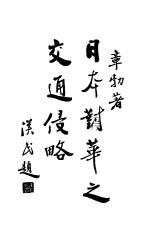 章勃著
日本對華之
交通侵略
漢民題